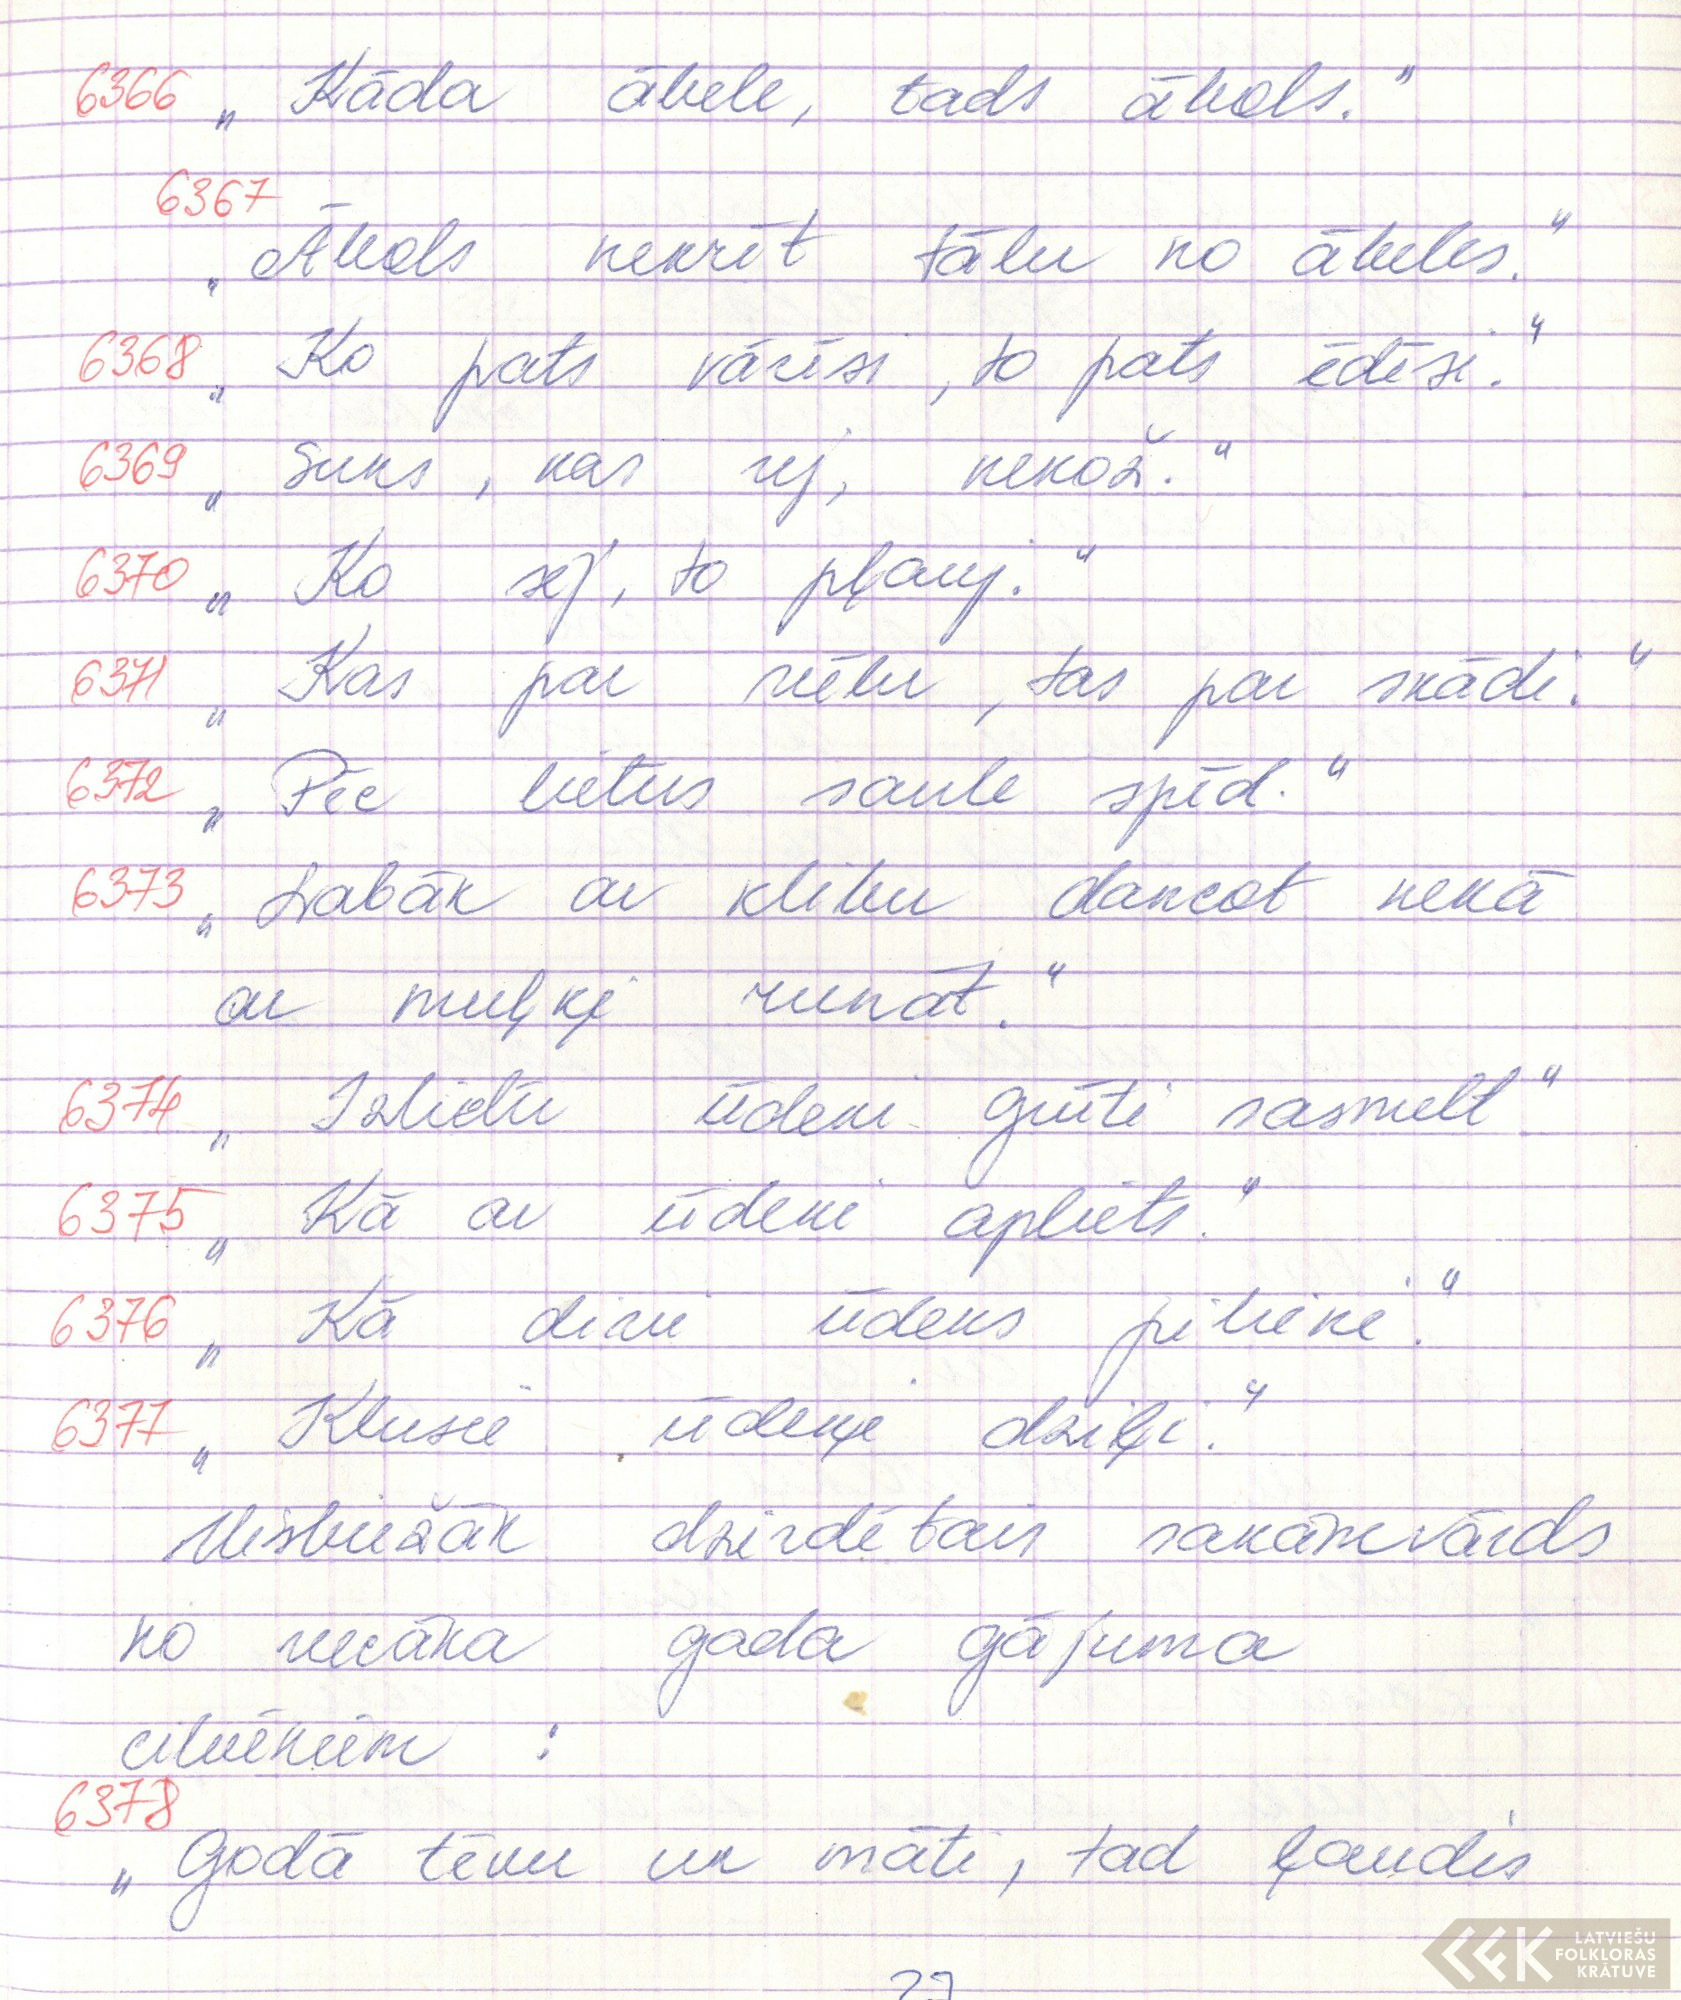 6366 „Kāda ābele, tāds ābols.“
6367
„Ābols nekrīt tālu no ābeles.“
6368 „Ko pats vārīsi, to pats ēdīsi.“
6369 „Suns, kas rej, nekož.“
6370 „Ko sēj, to pļauj.“
6371 „Kas par vēlu, tas par skādi.“
6372 „Pēc lietus saule spīd.“
6373 „Labāk ar klibu dancot nekā
ar muļķi runāt.“
6374 „Izlietu ūdeni grūti sasmelt“
6375 „Kā ar ūdeni apliets.“
6376 „Kā divi ūdens pilieni.“
6377 „Klusie ūdeņi dziļi.“
Visbiežāk dzirdētais sakāmvārds
no vecāka gada gājuma
cilvēkiem :
6378
„Godā tēvu un māti, tad ļaudis
27
LATVIEŠU
FOLKLORAS
KRĀTUVE